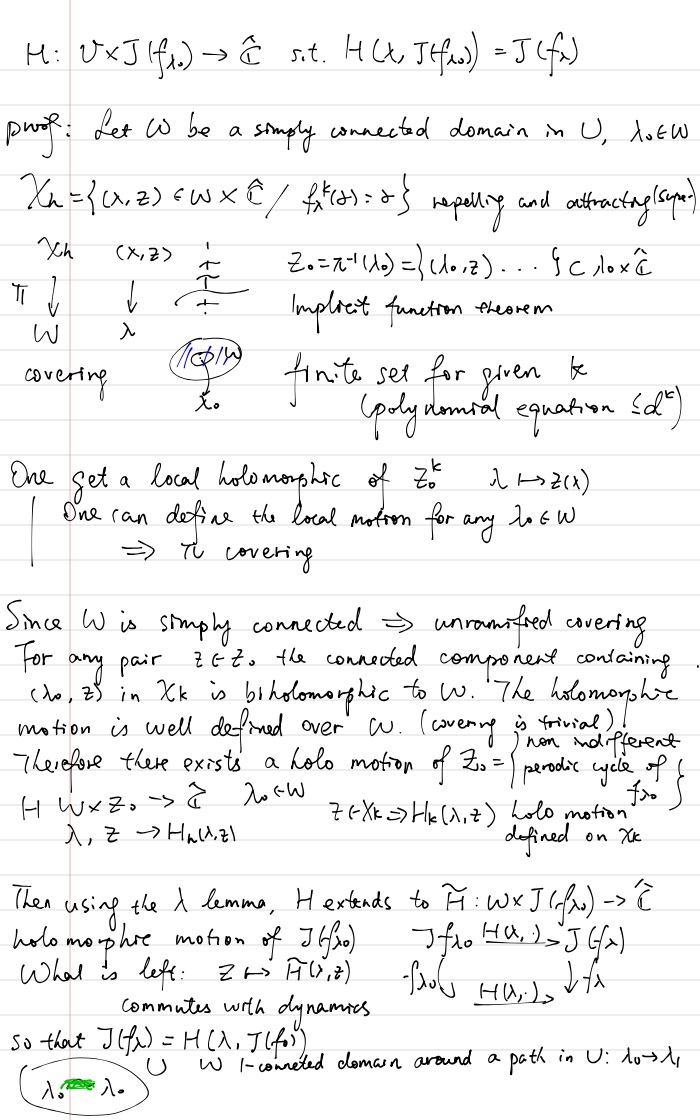 H: U×J(f_{λ₀}) → Ĉ s.t. H(λ, J(f_{λ₀})) = J(f_λ)
proof: Let W be a simply connected domain in U, λ₀∈W
X_k = {(λ, z) ∈ W × Ĉ / f_λ^k(z) = z} repelling and attracting (super)
X_k (λ, z) Z₀ = π⁻¹(λ₀) = {(λ₀, z) ... } ⊂ λ₀ × Ĉ
π ↓ ↓ Implicit function theorem
W λ W
covering λ₀ finite set for given k
(polynomial equation ≤ d^k)
One get a local holomorphic of Z₀^k λ ↦ z(λ)
One can define the local motion for any λ₀ ∈ W
⇒ π covering
Since W is simply connected ⇒ unramified covering
For any pair z ∈ Z₀ the connected component containing
(λ₀, z) in X_k is biholomorphic to W. The holomorphic
motion is well defined over W. (covering is trivial)
Therefore there exists a holo motion of Z₀ = { non indifferent periodic cycle of f_{λ₀} }
H W × Z₀ → Ĉ λ₀ ∈ W z ∈ X_k ⇒ H_k(λ, z) holo motion
λ, z → H_k(λ, z) defined on X_k
Then using the λ lemma, H extends to H̃ : W × J(f_{λ₀}) → Ĉ
holomorphic motion of J(f_{λ₀}) J f_{λ₀} H(λ, ·) → J(f_λ)
What is left: z ↦ H̃(λ, z) f_{λ₀} H(λ, ·) → ↓ f_λ
commutes with dynamics
so that J(f_λ) = H(λ, J(f₀))
U W 1-conneted domain around a path in U: λ₀ → λ₁
λ₀ λ₀